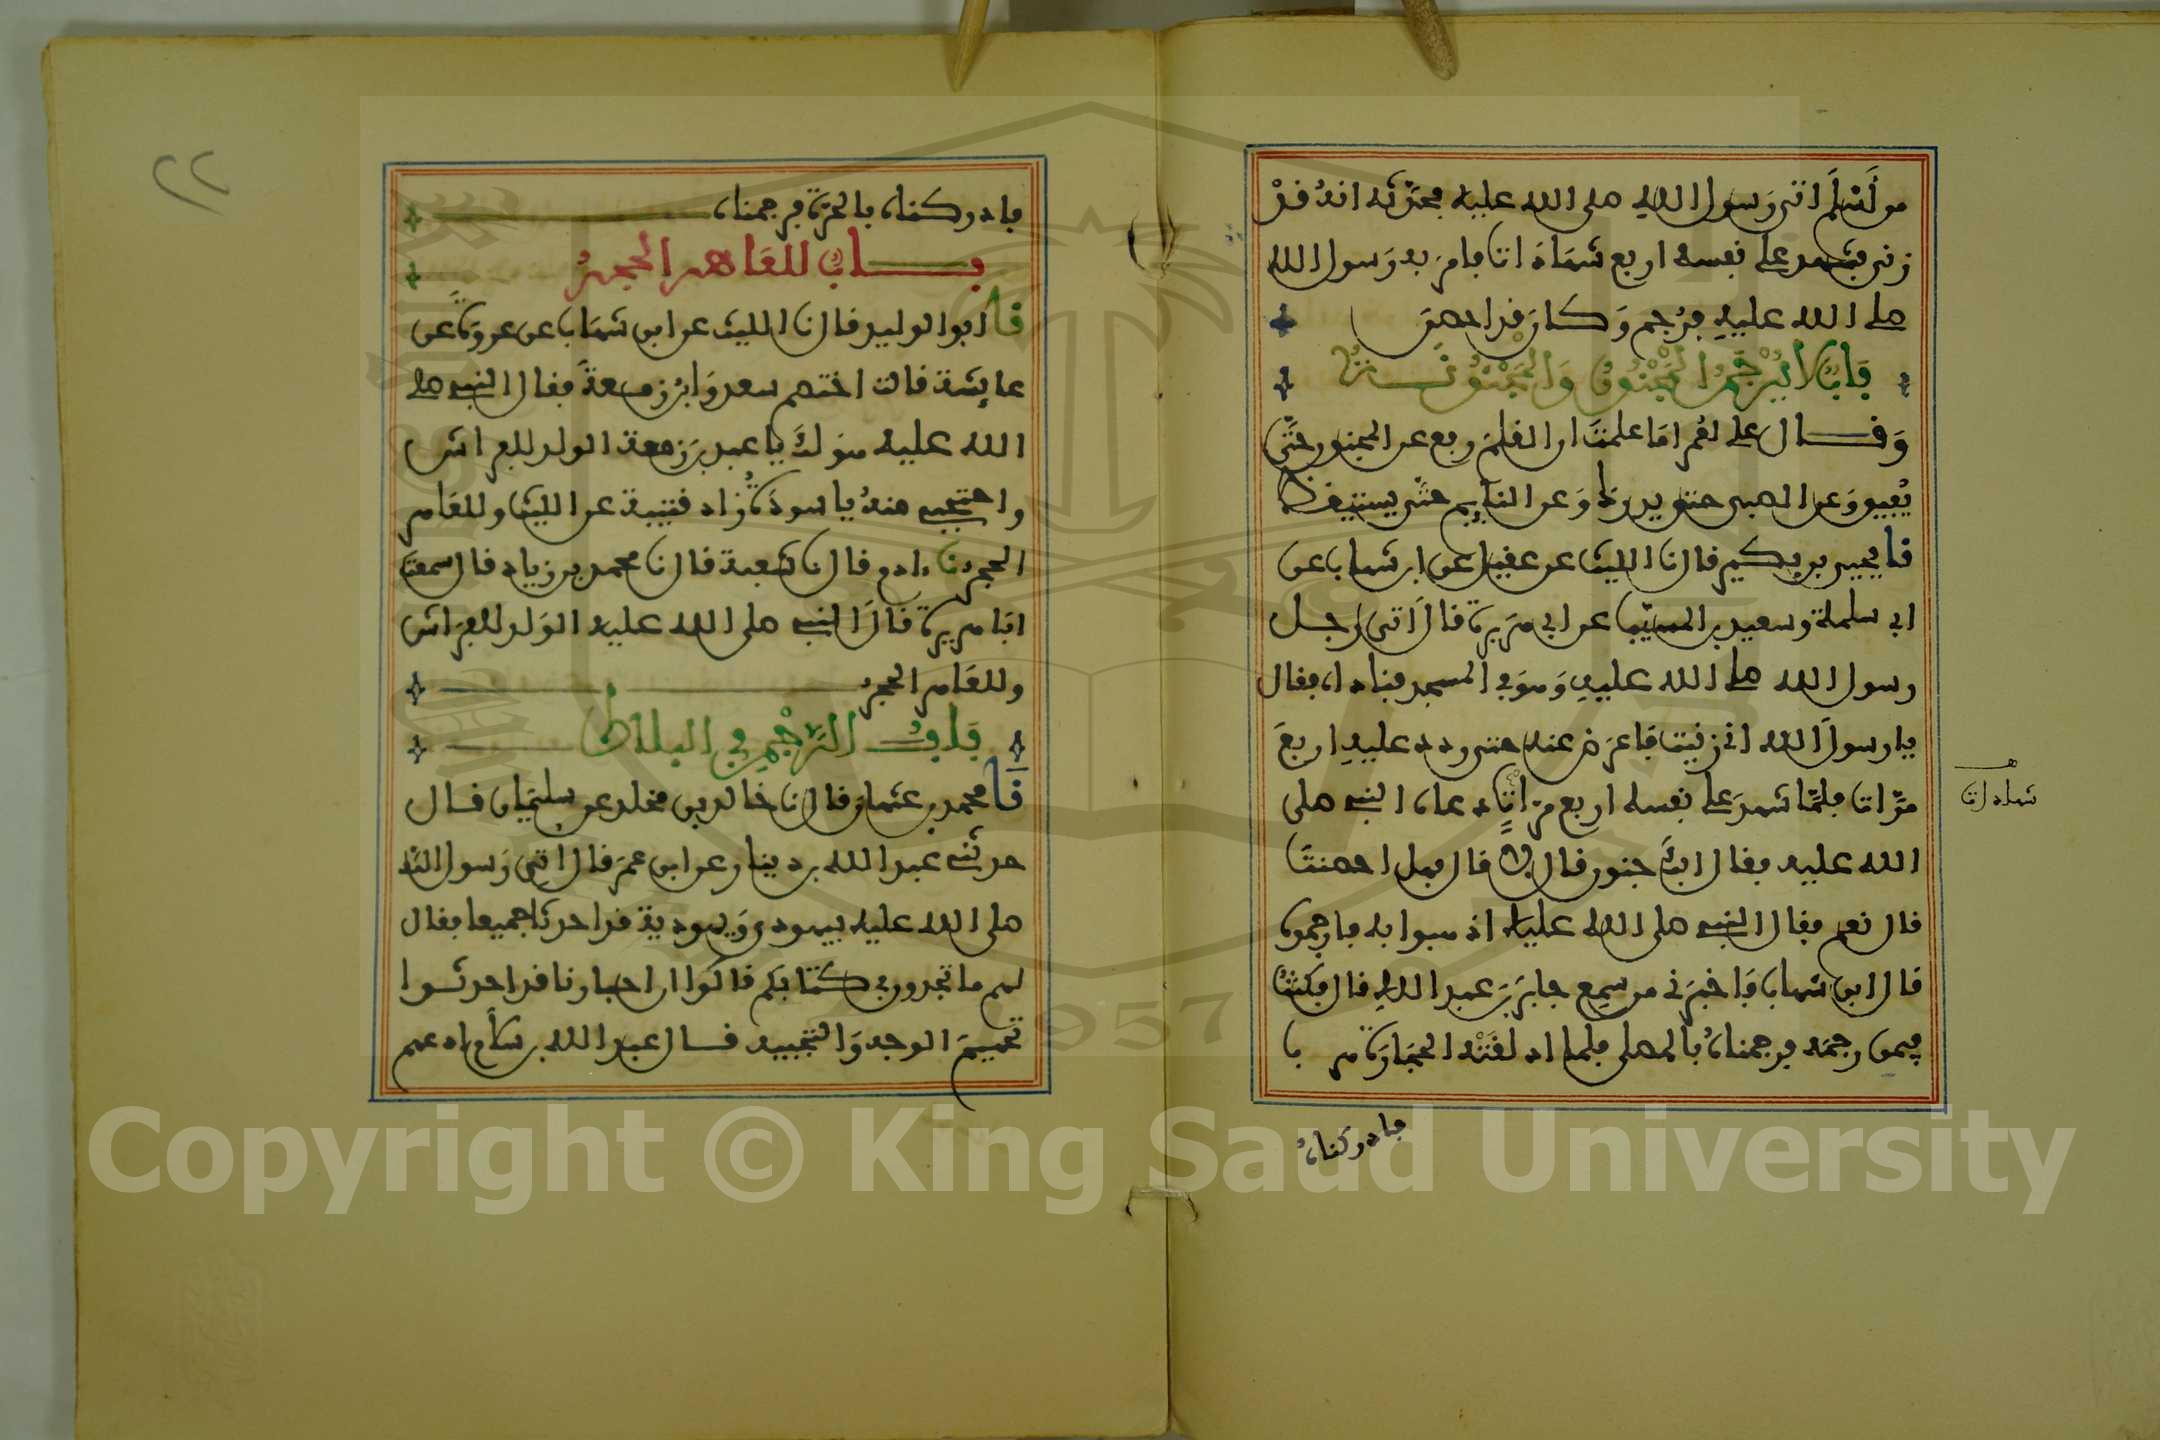 من أَسْلَمَ اتى رَسول اللهِ صلى الله عليه فحدّثه انهُ قدْ
زنى فشهد على نفسه اربع شهَادَات فامرَ به رَسول الله
صلى الله عليهِ فرُجم وَكان قد احصن
بَابٌ لَا يُرْجَمُ الْمَجْنُونُ وَالْمَجْنُونَـــةُ
وَقـــال على لعُمر امَا علمتَ ان القلمَ رفع عن المجنون حَتَّى
يُفيق وَعن الصبى حتى يدرك وَعن النائم حتَّى يستيقظ
نا يحيى بن بكير قال نا الليث عن عقيل عن ابن شهاب عن
ابى سلمة وسعيد بن المسيّب عن ابى هرَيرة قال اَتى رجل
رسول الله صلى الله عليهِ وَهوَ فى المسجد فناداه فقال
يا رسولَ الله انى زنيت فاعرَض عنه حتى ردد عليهِ اربعَ
مرّات فلمَّا شهدَ على نفسه اربع مرّاتٍ دعاه النبى صلى
الله عليه فقال ابكَ جنون قال لا قال فهل احصنتَ
قال نعم فقال النبى صلى الله عليه اذهبوا به فارجموه
قال ابن شهاب فَاخبرَنى من سمِع جابرَ بنَ عبد اللهِ قال فكنتُ
فيمن رجمَه فرجمناهُ بالمصلى فلما اذلقَتْه الحجَارَة هرب
شهادات
فادركناهُ
٢٢
فادركناه بالحرّة فرجمناه
بـــــاب للعَاهر الحجرُ
نا ابو الوليد قال نا الليث عن ابن شهَاب عن عروَةَ عن
عايشة قالت اختصم سعد وَابن زمعةَ فقال النبى صلى
الله عليه هوَ لكَ يا عبد بنَ زمعة الولد للفراش
واحتجبى منهُ يا سودَةُ زاد قتيبة عن الليث وللعَاهر
الحجرُ نا ءادم قال نا شعبة قال نا محمد بن زياد قال سمعت
ابَا هريرة قال النبى صلى الله عليه الوَلد للفرَاش
وللعَاهر الحجرُ
بَابُ الرَّجْمِ فى البلاط
نا محمد بن عثمان قال نا خالد بن مخلد عن سليمَان قـــال
حدثنى عبد الله بن دينار عن ابن عمرَ قال اُتِىَ رَسول الله
صلى الله عليه بيهودى وَيهودية قد احدثا جميعا فقال
لهم ما تجدون فى كتَابكم قالوا ان احبارنا قد احدثــوا
تحميمَ الوجه وَالتجبيه قـــال عبد الله بن سَلَام ادعهم
Copyright © King Saud University
1957